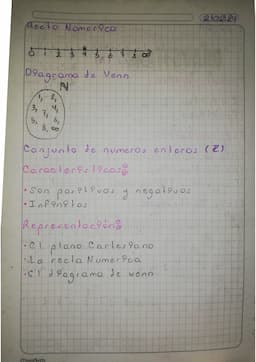 21/02/24
Recta Numerica
0 1 2 3 4 5 6 7 8 ∞
Diagrama de Venn
N
1, 2,
3, 4,
7,
5, 6,
8, ∞
Conjunto de numeros enteros (Z)
Caracteristicas:
• Son positivos y negativos
• Infinitos
Representación:
• El plano Cartesiano
• La recta Numerica
• El diagrama de venn